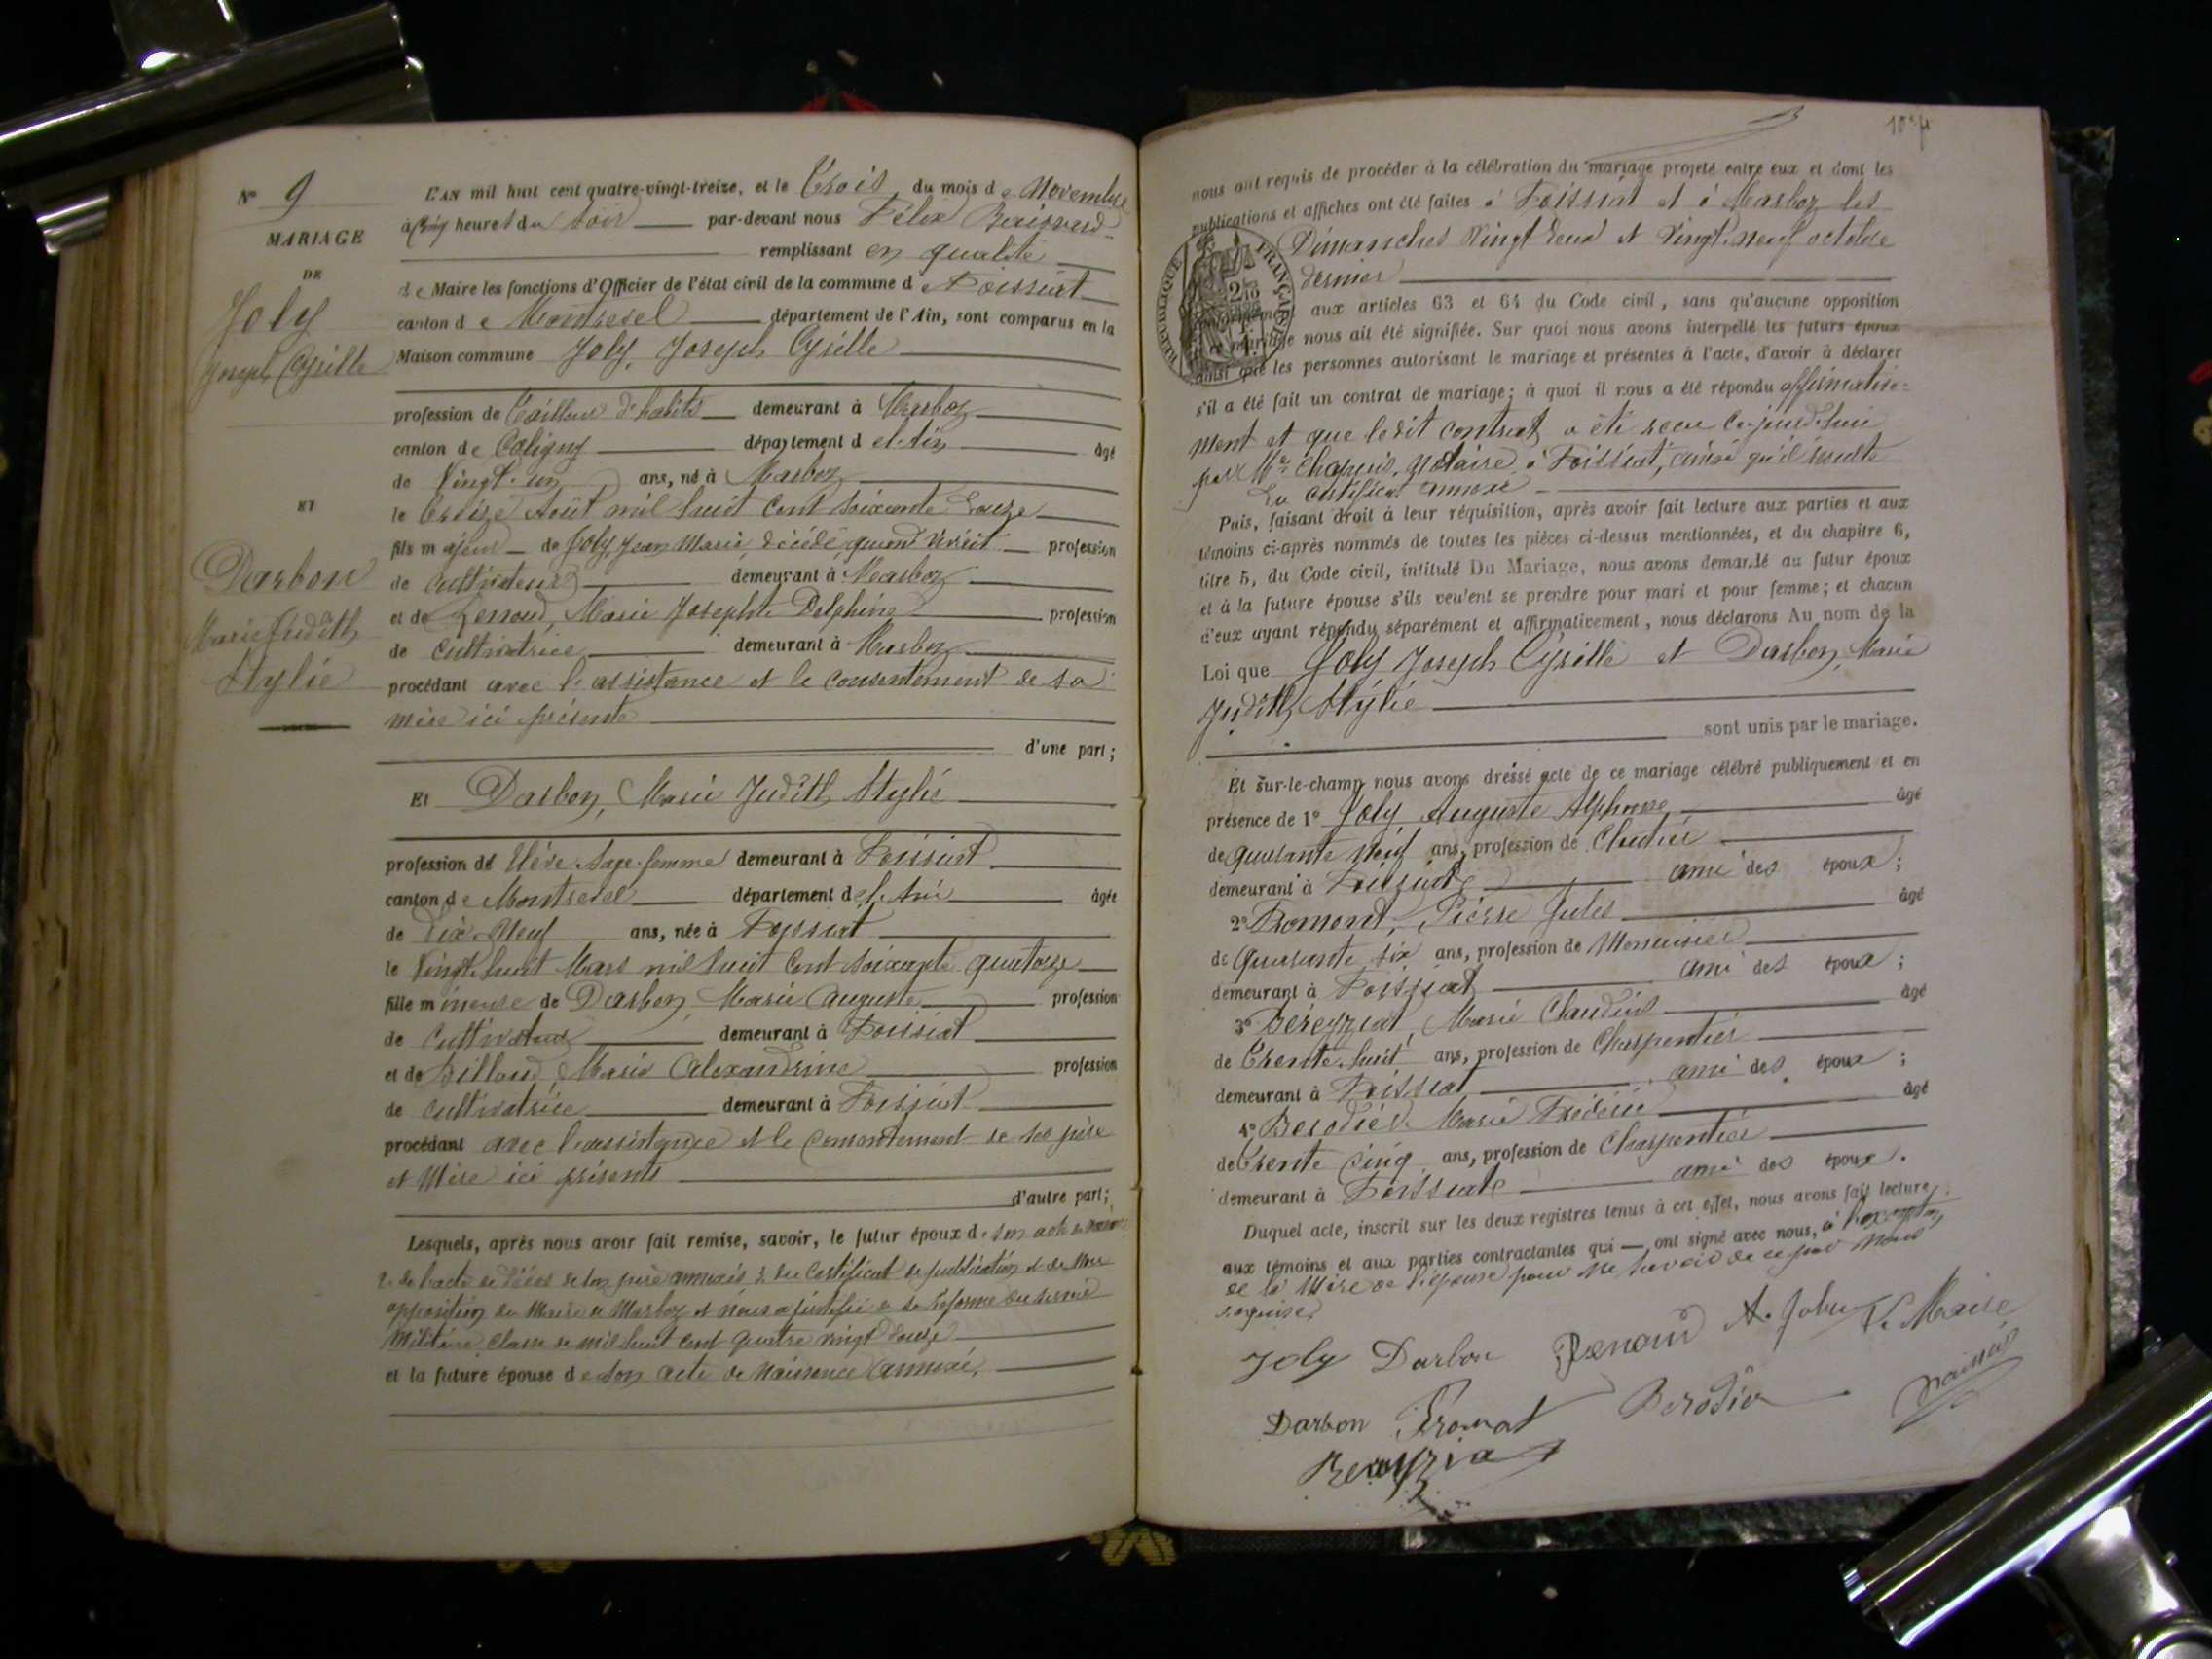 N° 9
MARIAGE
DE
Joly
Joseph Cyrille
ET
Darbon
Marie Judith
Stylie
L'AN mil huit cent quatre-vingt-treize, et le Trois du mois de Novembre
à Cinq heures du soir par-devant nous Félix
remplissant en qualité
de Maire les fonctions d'Officier de l'état civil de la commune de Foissiat
canton de Montrevel département de l'Ain, sont comparus en la
Maison commune Joly, Joseph Cyrille
profession de Tailleur d'habits demeurant à Marboz
canton de Coligny département de l'Ain âgé
de Vingt-un ans, né à Marboz
le Treize Août mil huit cent soixante douze
fils majeur de Joly, Jean Marie, décédé, quand vivait profession
de cultivateur demeurant à Marboz
et de Renoud, Marie Josephte Delphine profession
de cultivatrice demeurant à Marboz
procédant avec l'assistance et le consentement de sa
mère ici présente
d'une part;
Et Darbon, Marie Judith Stylie
profession de Elève Sage-femme demeurant à Foissiat
canton de Montrevel département de l'Ain âgée
de Dix-Neuf ans, née à Foissiat
le Vingt-huit Mars mil huit cent soixante quatorze
fille mineure de Darbon, Marie Auguste profession
de cultivateur demeurant à Foissiat
et de Billoud, Marie Alexandrine profession
de cultivatrice demeurant à Foissiat
procédant avec l'assistance et le consentement de ses père
et Mère ici présents
d'autre part;
Lesquels, après nous avoir fait remise, savoir, le futur époux de son acte de
2° de l'acte de décès de son père annexés 3° du certificat de publication et de non
opposition du Maire de Marboz et nous a justifié de sa Réforme du service
Militaire classe de mil huit cent quatre vingt douze
et la future épouse de son acte de naissance annexé.
nous ont requis de procéder à la célébration du mariage projeté entre eux et dont les
publications et affiches ont été faites à Foissiat et à Marboz les
Dimanches Vingt deux et Vingt-neuf octobre
dernier
RÉPUBLIQUE FRANÇAISE
conformément aux articles 63 et 64 du Code civil, sans qu'aucune opposition
à ce mariage nous ait été signifiée. Sur quoi nous avons interpellé les futurs époux
ainsi que les personnes autorisant le mariage et présentes à l'acte, d'avoir à déclarer
s'il a été fait un contrat de mariage; à quoi il nous a été répondu affirmative-
ment et que ledit contrat a été reçu ce jourd'hui
par Me Chapuis, notaire à Foissiat, ainsi qu'il résulte
du certificat annexé
Puis, faisant droit à leur réquisition, après avoir fait lecture aux parties et aux
témoins ci-après nommés de toutes les pièces ci-dessus mentionnées, et du chapitre 6,
titre 5, du Code civil, intitulé Du Mariage, nous avons demandé au futur époux
et à la future épouse s'ils veulent se prendre pour mari et pour femme; et chacun
d'eux ayant répondu séparément et affirmativement, nous déclarons Au nom de la
Loi que Joly Joseph Cyrille et Darbon, Marie
Judith Stylie
sont unis par le mariage.
Et sur-le-champ nous avons dressé acte de ce mariage célébré publiquement et en
présence de 1° Joly Auguste Alphonse âgé
de quarante neuf ans, profession de
demeurant à Foissiat ami des époux;
2° Romand, Pierre Jules âgé
de quarante six ans, profession de Menuisier
demeurant à Foissiat ami des époux;
3° Béreyziat, Marie Claudius âgé
de Trente-huit ans, profession de Charpentier
demeurant à Foissiat ami des époux;
4° Berodier Marie Frédéric âgé
de Trente cinq ans, profession de Charpentier
demeurant à Foissiat ami des époux.
Duquel acte, inscrit sur les deux registres tenus à cet effet, nous avons fait lecture
aux témoins et aux parties contractantes qui ont signé avec nous, à l'exception
de la Mère de l'épouse pour ne savoir de ce par nous
requise.
Joly Darbon Renoud A. Joly Le Maire
Darbon Berodier